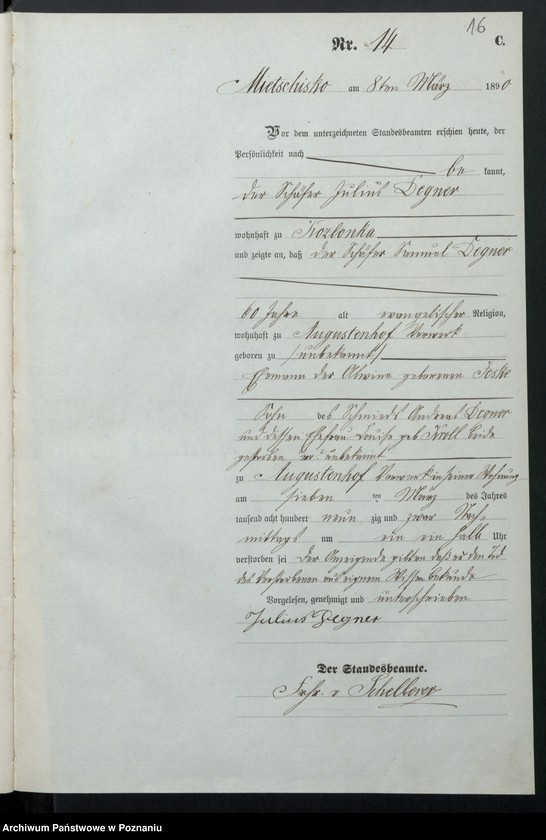 16
Nr. 14 C.
Mietschisko am 8ten März 1890
Vor dem unterzeichneten Standesbeamten erschien heute, der
Persönlichkeit nach
be kannt,
der Schäfer Julius Degner
wohnhaft zu Kozlonka
und zeigte an, daß der Schäfer Samuel Degner
60 Jahre alt evangelischer Religion,
wohnhaft zu Augustenhof Vorwerk
geboren zu /unbekannt/
Ehemann der Alwine geborenen Jeske
Sohn des Schmieds Andreas Degner
und dessen Ehefrau Louise geb Kroll beide
gestorben wo unbekannt
zu Augustenhof Vorwerk in seiner Wohnung
am sieben ten März des Jahres
tausend acht hundert neun zig und zwar Nach-
mittags um ein ein halb Uhr
verstorben sei Der Anzeigende gibt an daß er den Tod
des Verstorbenen aus eigenem Wissen bekunde
Vorgelesen, genehmigt und unterschrieben
Julius Degner
Der Standesbeamte.
Frhr. v
Archiwum Państwowe w Poznaniu